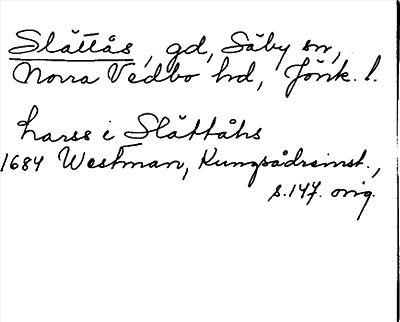 Slättås, gd, Säby sn,
Norra Vedbo hd, Jönk. l.
Larss i Slåttåhs
1684 Westman, Kungsådreinst.,
s. 147. orig.